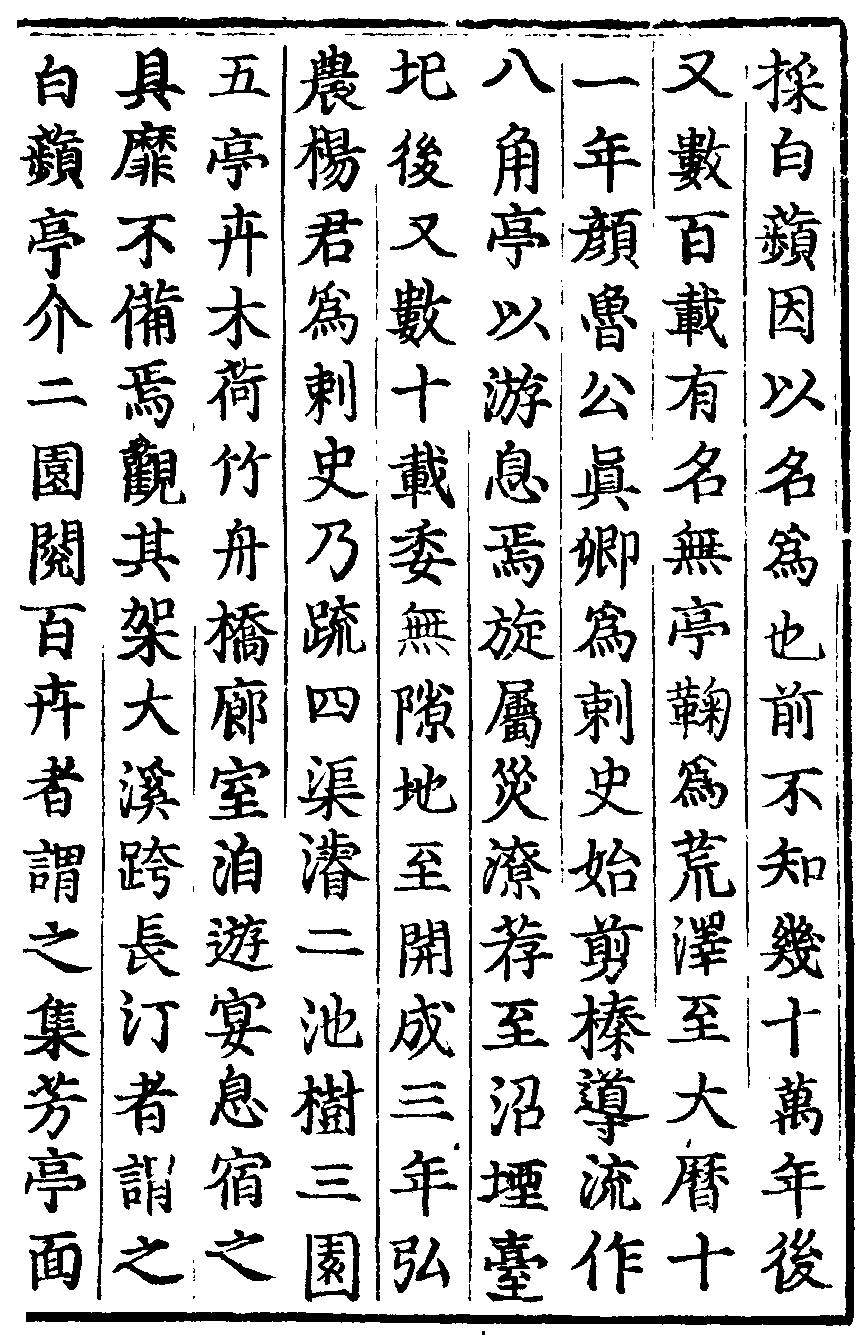 採白蘋因以名爲也前不知幾十萬年後
又數百載有名無亭鞠爲荒澤至大曆十
一年顔魯公眞卿爲刺史始剪榛導流作
八角亭以游息焉旋屬災潦荐至沼堙臺
圯後又數十載委無隙地至開成三年弘
農楊君爲刺史乃疏四渠濬二池樹三園
五亭卉木荷竹舟橋廊室洎遊宴息宿之
具靡不備焉觀其架大溪跨長汀者謂之
白蘋亭介二園閱百卉者謂之集芳亭面